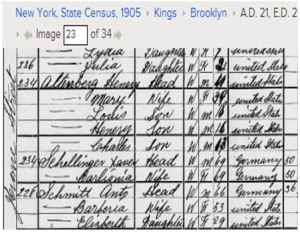 New York, State Census, 1905 › Kings › Brooklyn › A.D. 21, E.D. 2
Image 23 of 34
Lydia Daughter W
236 Julia Daughter W 21 United States
234 Altenberg Henry Head W M United States
Mary Wife W 39 United States
Louis Son W M 16 United States
Henery Son W M 16 United States
Charles Son W M 63 United States
234 Schellinger Xaver Head W M 64 Germany 50
Wife W 69 Germany 50
226 Schmitt Anto Head W M 66 Germany 36
Barberia Wife W 53 United States
Elisbeth Daughter W 29 United States
Street